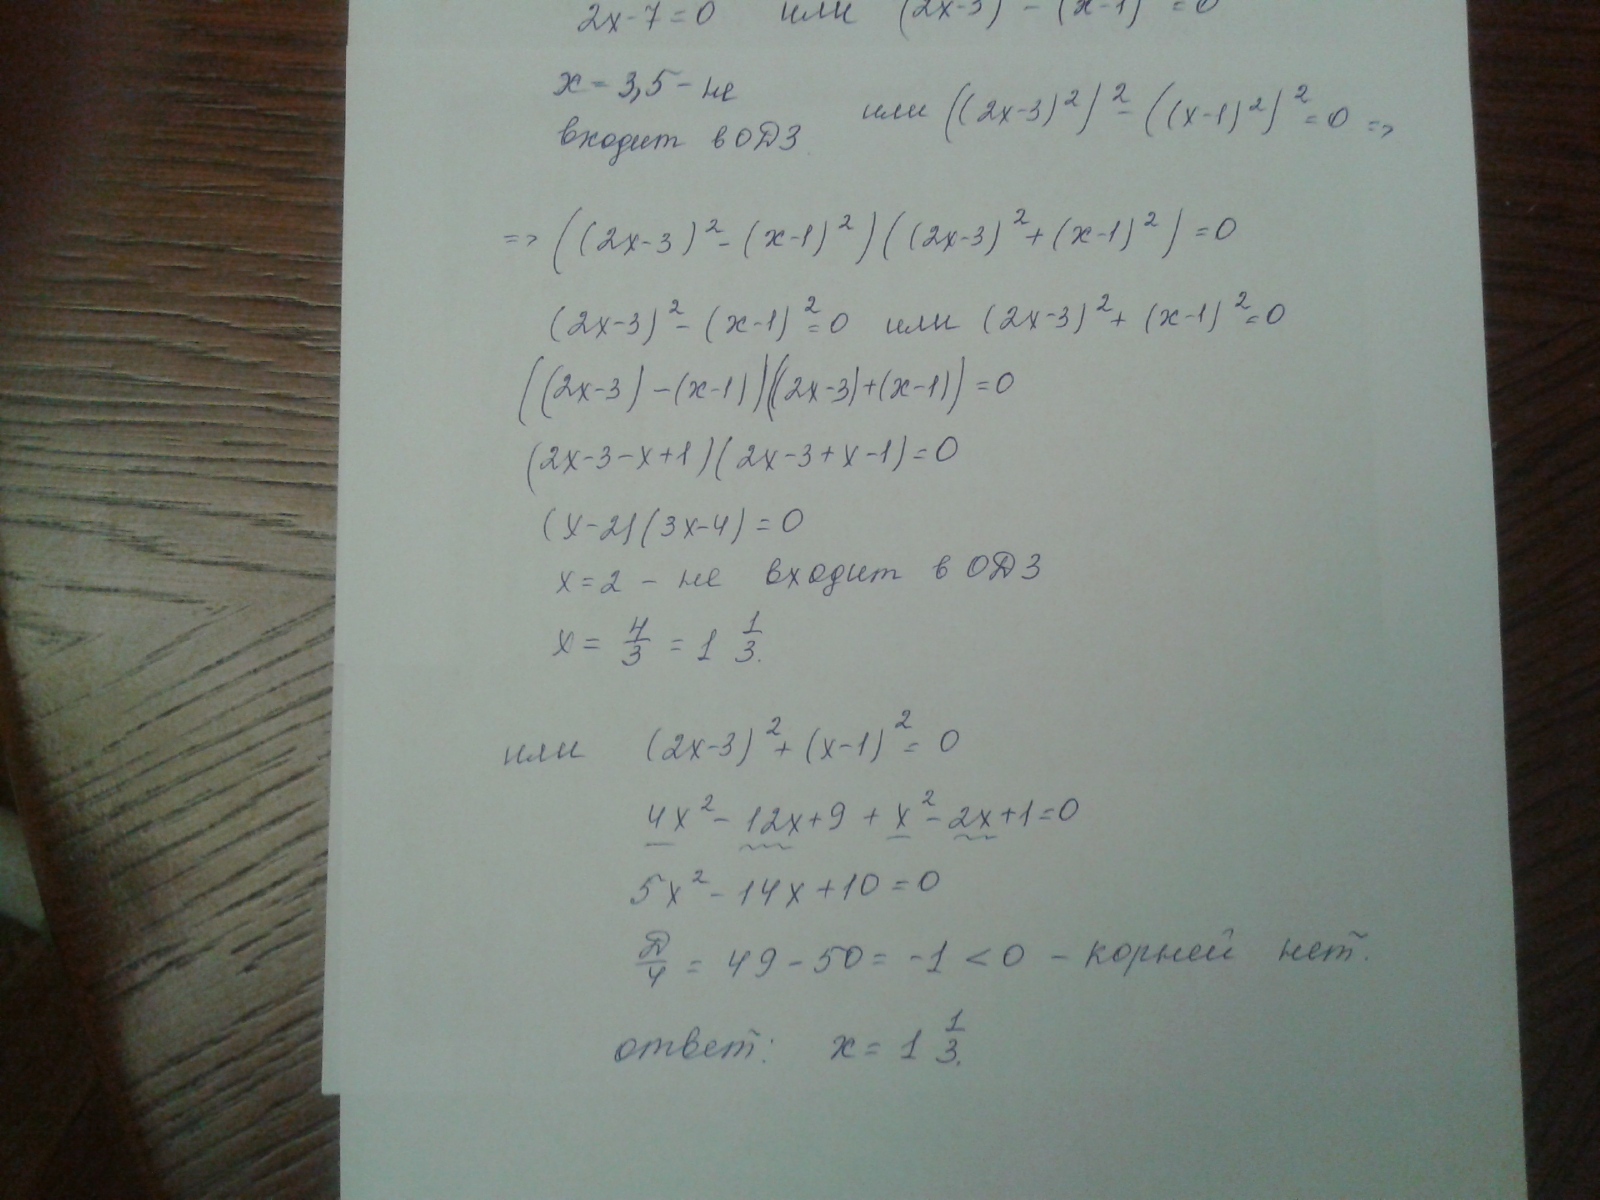 2x-7=0 или (2x-3) - (x-1) =0
x=3,5 - не
входит в ОДЗ
или ((2x-3)²)² - ((x-1)²)² =0 =>
=> ((2x-3)² - (x-1)²)((2x-3)² + (x-1)²) =0
(2x-3)² - (x-1)² =0 или (2x-3)² + (x-1)² =0
((2x-3) - (x-1))((2x-3)+(x-1)) =0
(2x-3-x+1)(2x-3+x-1)=0
(x-2)(3x-4) =0
x=2 - не входит в ОДЗ
x= 4/3 = 1 1/3.
или (2x-3)² + (x-1)² = 0
4x² - 12x+9 + x² - 2x+1=0
5x² - 14x+10=0
Д/4 = 49-50= -1 < 0 - корней нет.
ответ: x= 1 1/3.